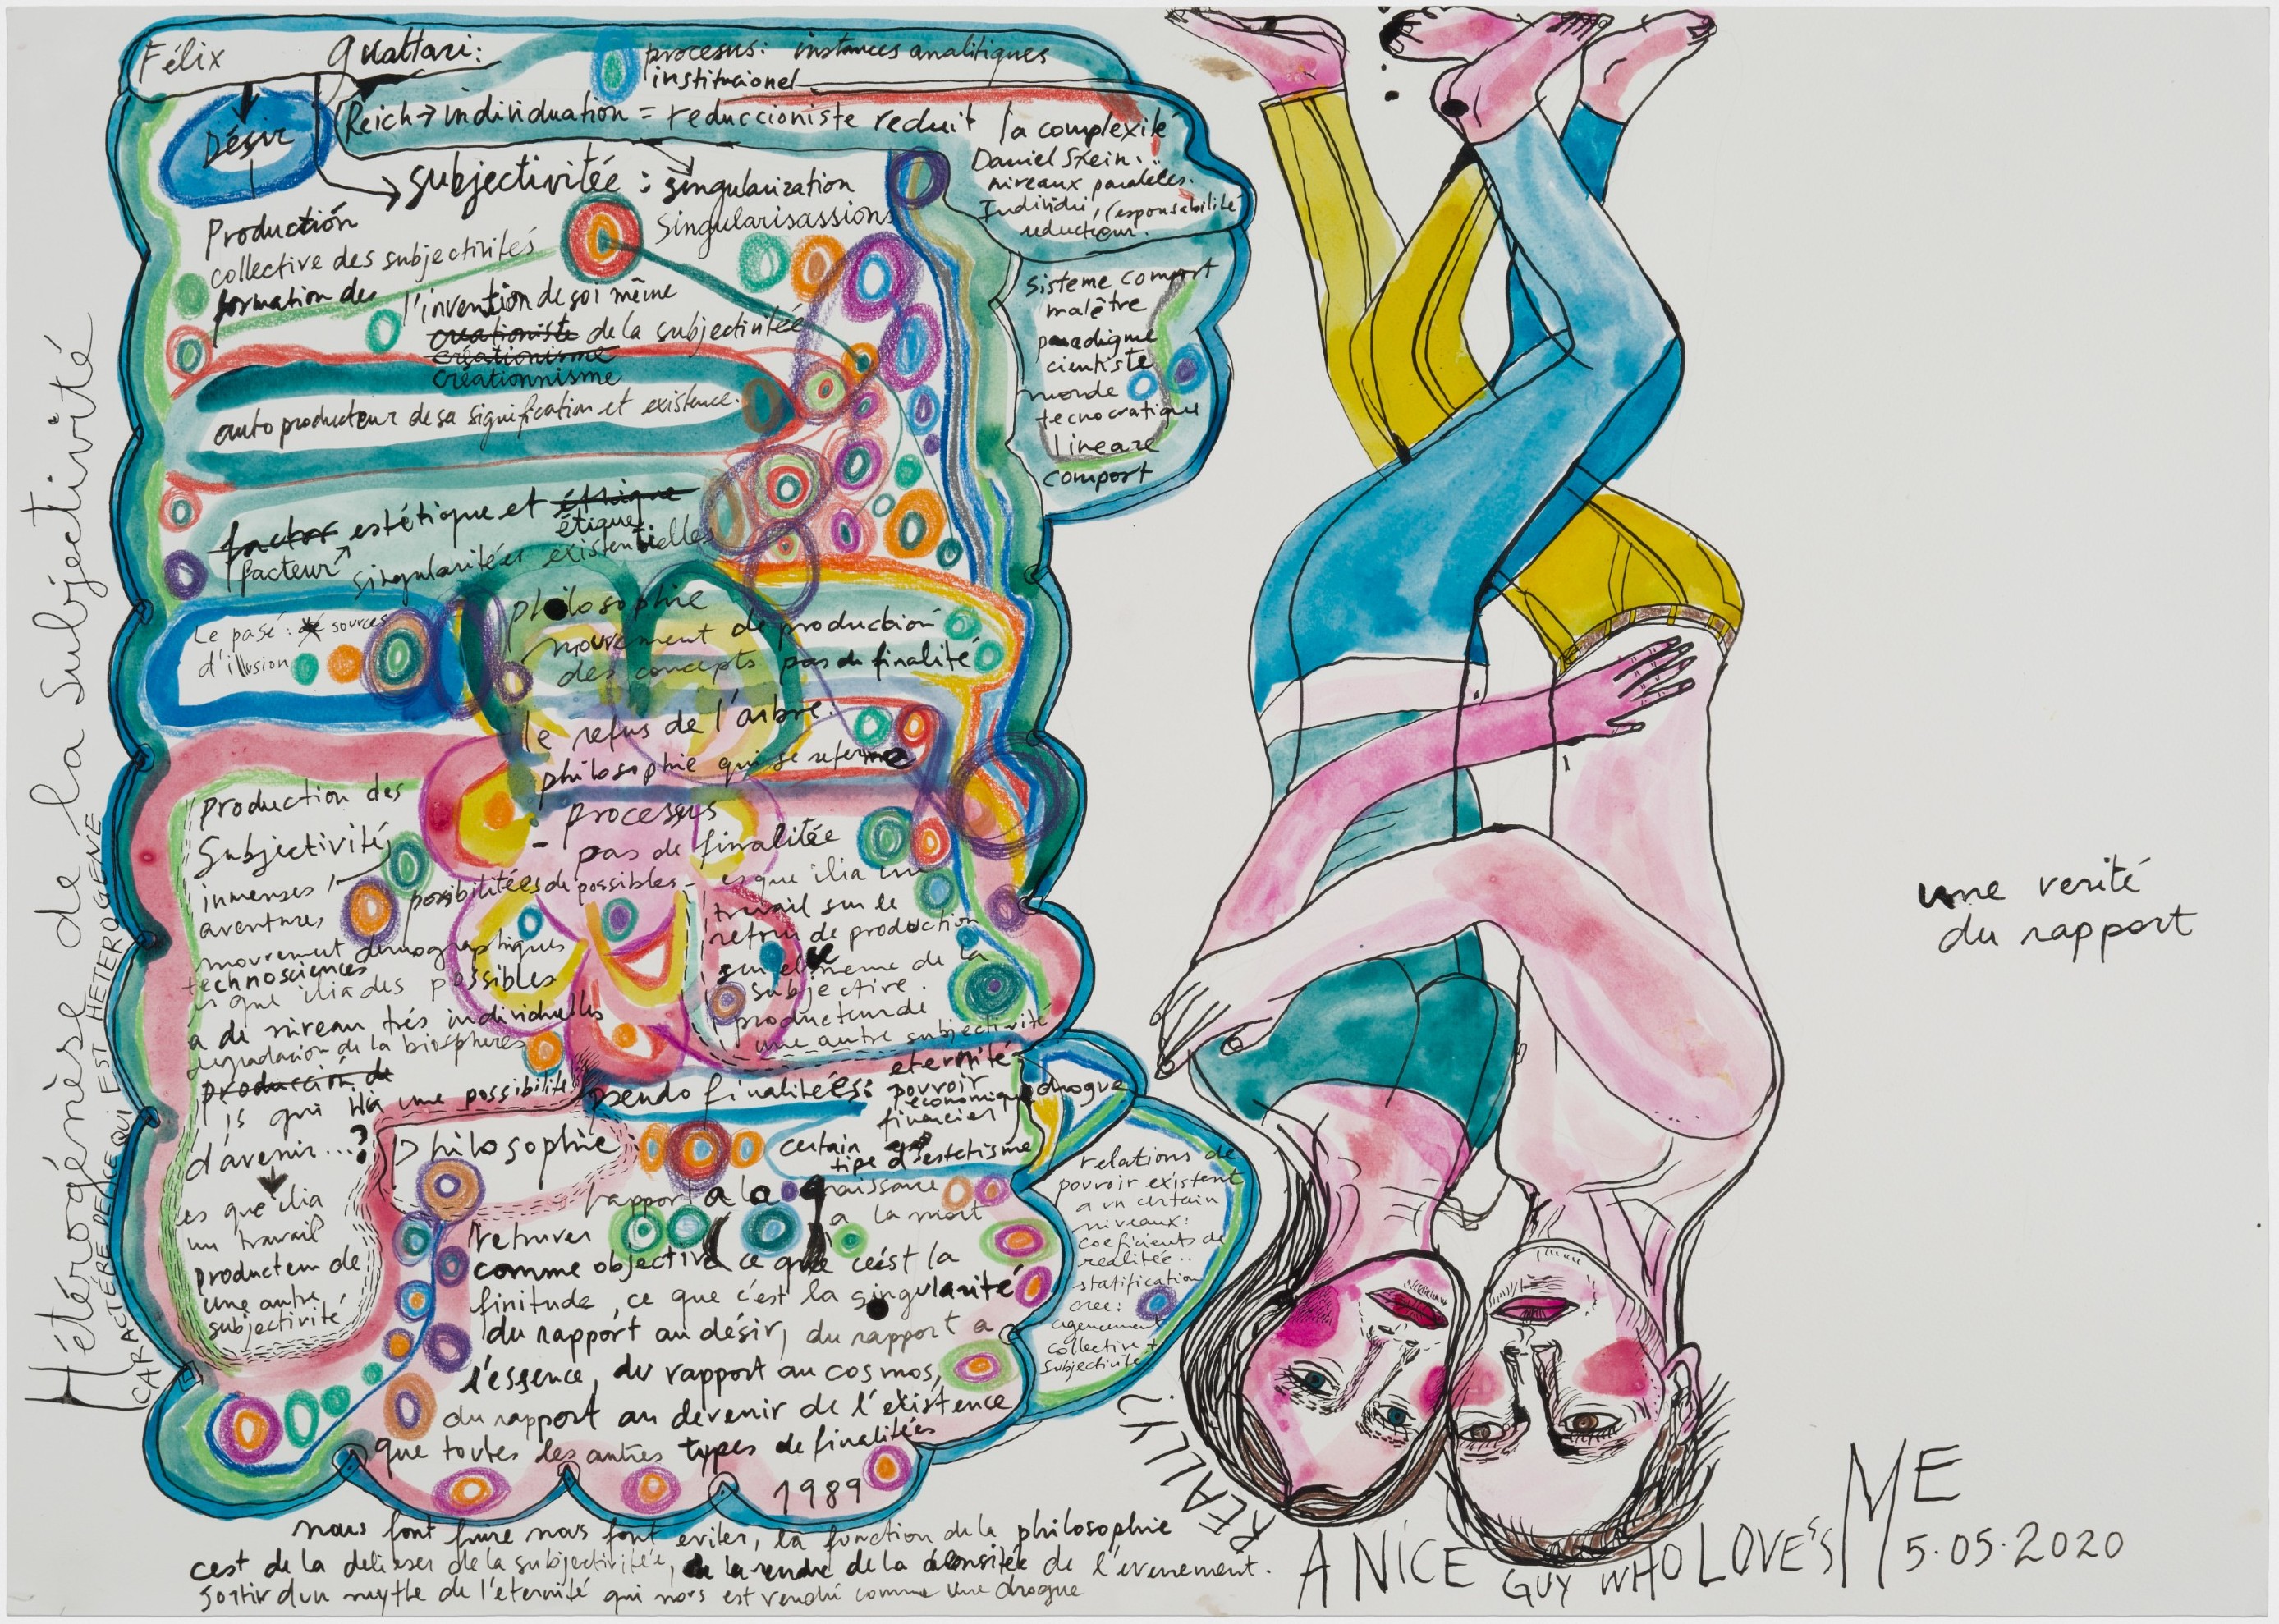 Félix Guattari:
procesus: instances analitiques
institucionel
Désir
Reich→individuation = reduccioniste reduit la complexité
Daniel Stein:
niveaux paralèles.
Individu, responsabilité
reducteur.
subjectivitée : singularization
Singularisassions
Production
collective des subjectivités
formation des
l'invention de soi même
creationiste de la subjectivitée
créationisme
créationnisme
sisteme comport
malêtre
paradigme
cientiste
monde
tecnocratique
lineare
comport
auto producteur de sa signification et existence.
factor estétique et éthique
étique
facteur singularitées existentielles
Le pasé: sources
d'illusion
philosophie
mouvement de production
des concepts pas de finalité
le refus de l'arbre.
philosophie qui se referme
- processus
- pas de finalitée
possibilitées de possibles -
Production des
Subjectivité
inmenses
aventures
mouvement demographiques
technosciences
es que ilia des possibles
a de niveau trés individuelles
degradacion de la biospheres
producción de
is qui ilia une possibilité
d'avenir...?
es que ilia
un travail
producteur de
une autre
subjectivité
es que ilia un
travail sur le
retour de production
sur el meme de la
subjective.
producteur de
une autre subjectivité
pseudo finalitées:
eternité
pouvoir
économique
financier
drogue
certain
tipe d'estetisme
Philosophie
rapport a la naissance
a la mort
retruver
comme objective ce que ceést la
finitude, ce que c'est la singularité
du rapport au désir, du rapport a
l'essence, du rapport au cosmos,
du rapport au devenir de l'éxistence
que toutes les autres types de finalitées
1989
relations de
pouvoir existent
a un certain
niveaux:
coeficients de
realitée..
statification
cree:
agencement
collective +
subjectivité
nous font fuire nous font eviter, la function de la philosophie
cest de la delieser de la subjectivitée, de la rendre de la densitée de l'evenement.
sortir dun mythe de l'éternité qui nous est vendu comme une drogue
Hétérogénèse de la Subjectivité
CARACTÉRE DE CE QUI EST HETEROGENE
une verité
du rapport
REALLY!
A NiCE GUY WHO LOVE'S ME
5.05.2020